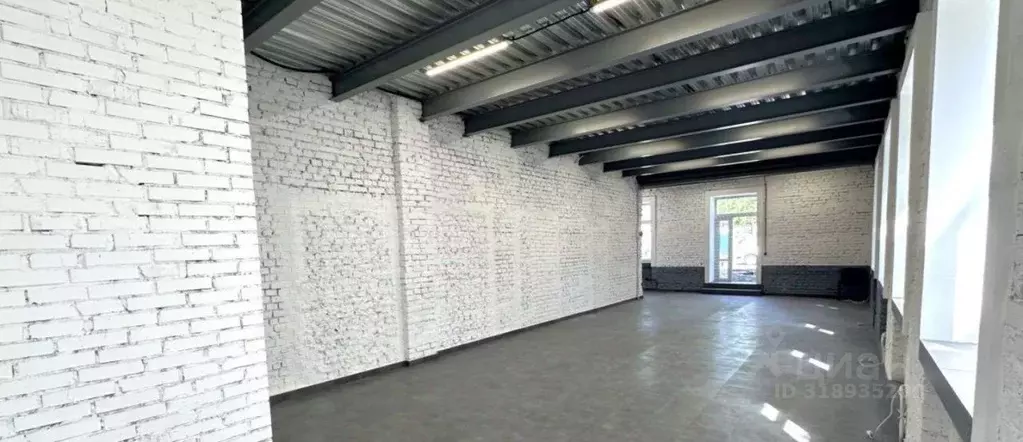 циан
ID 318935200